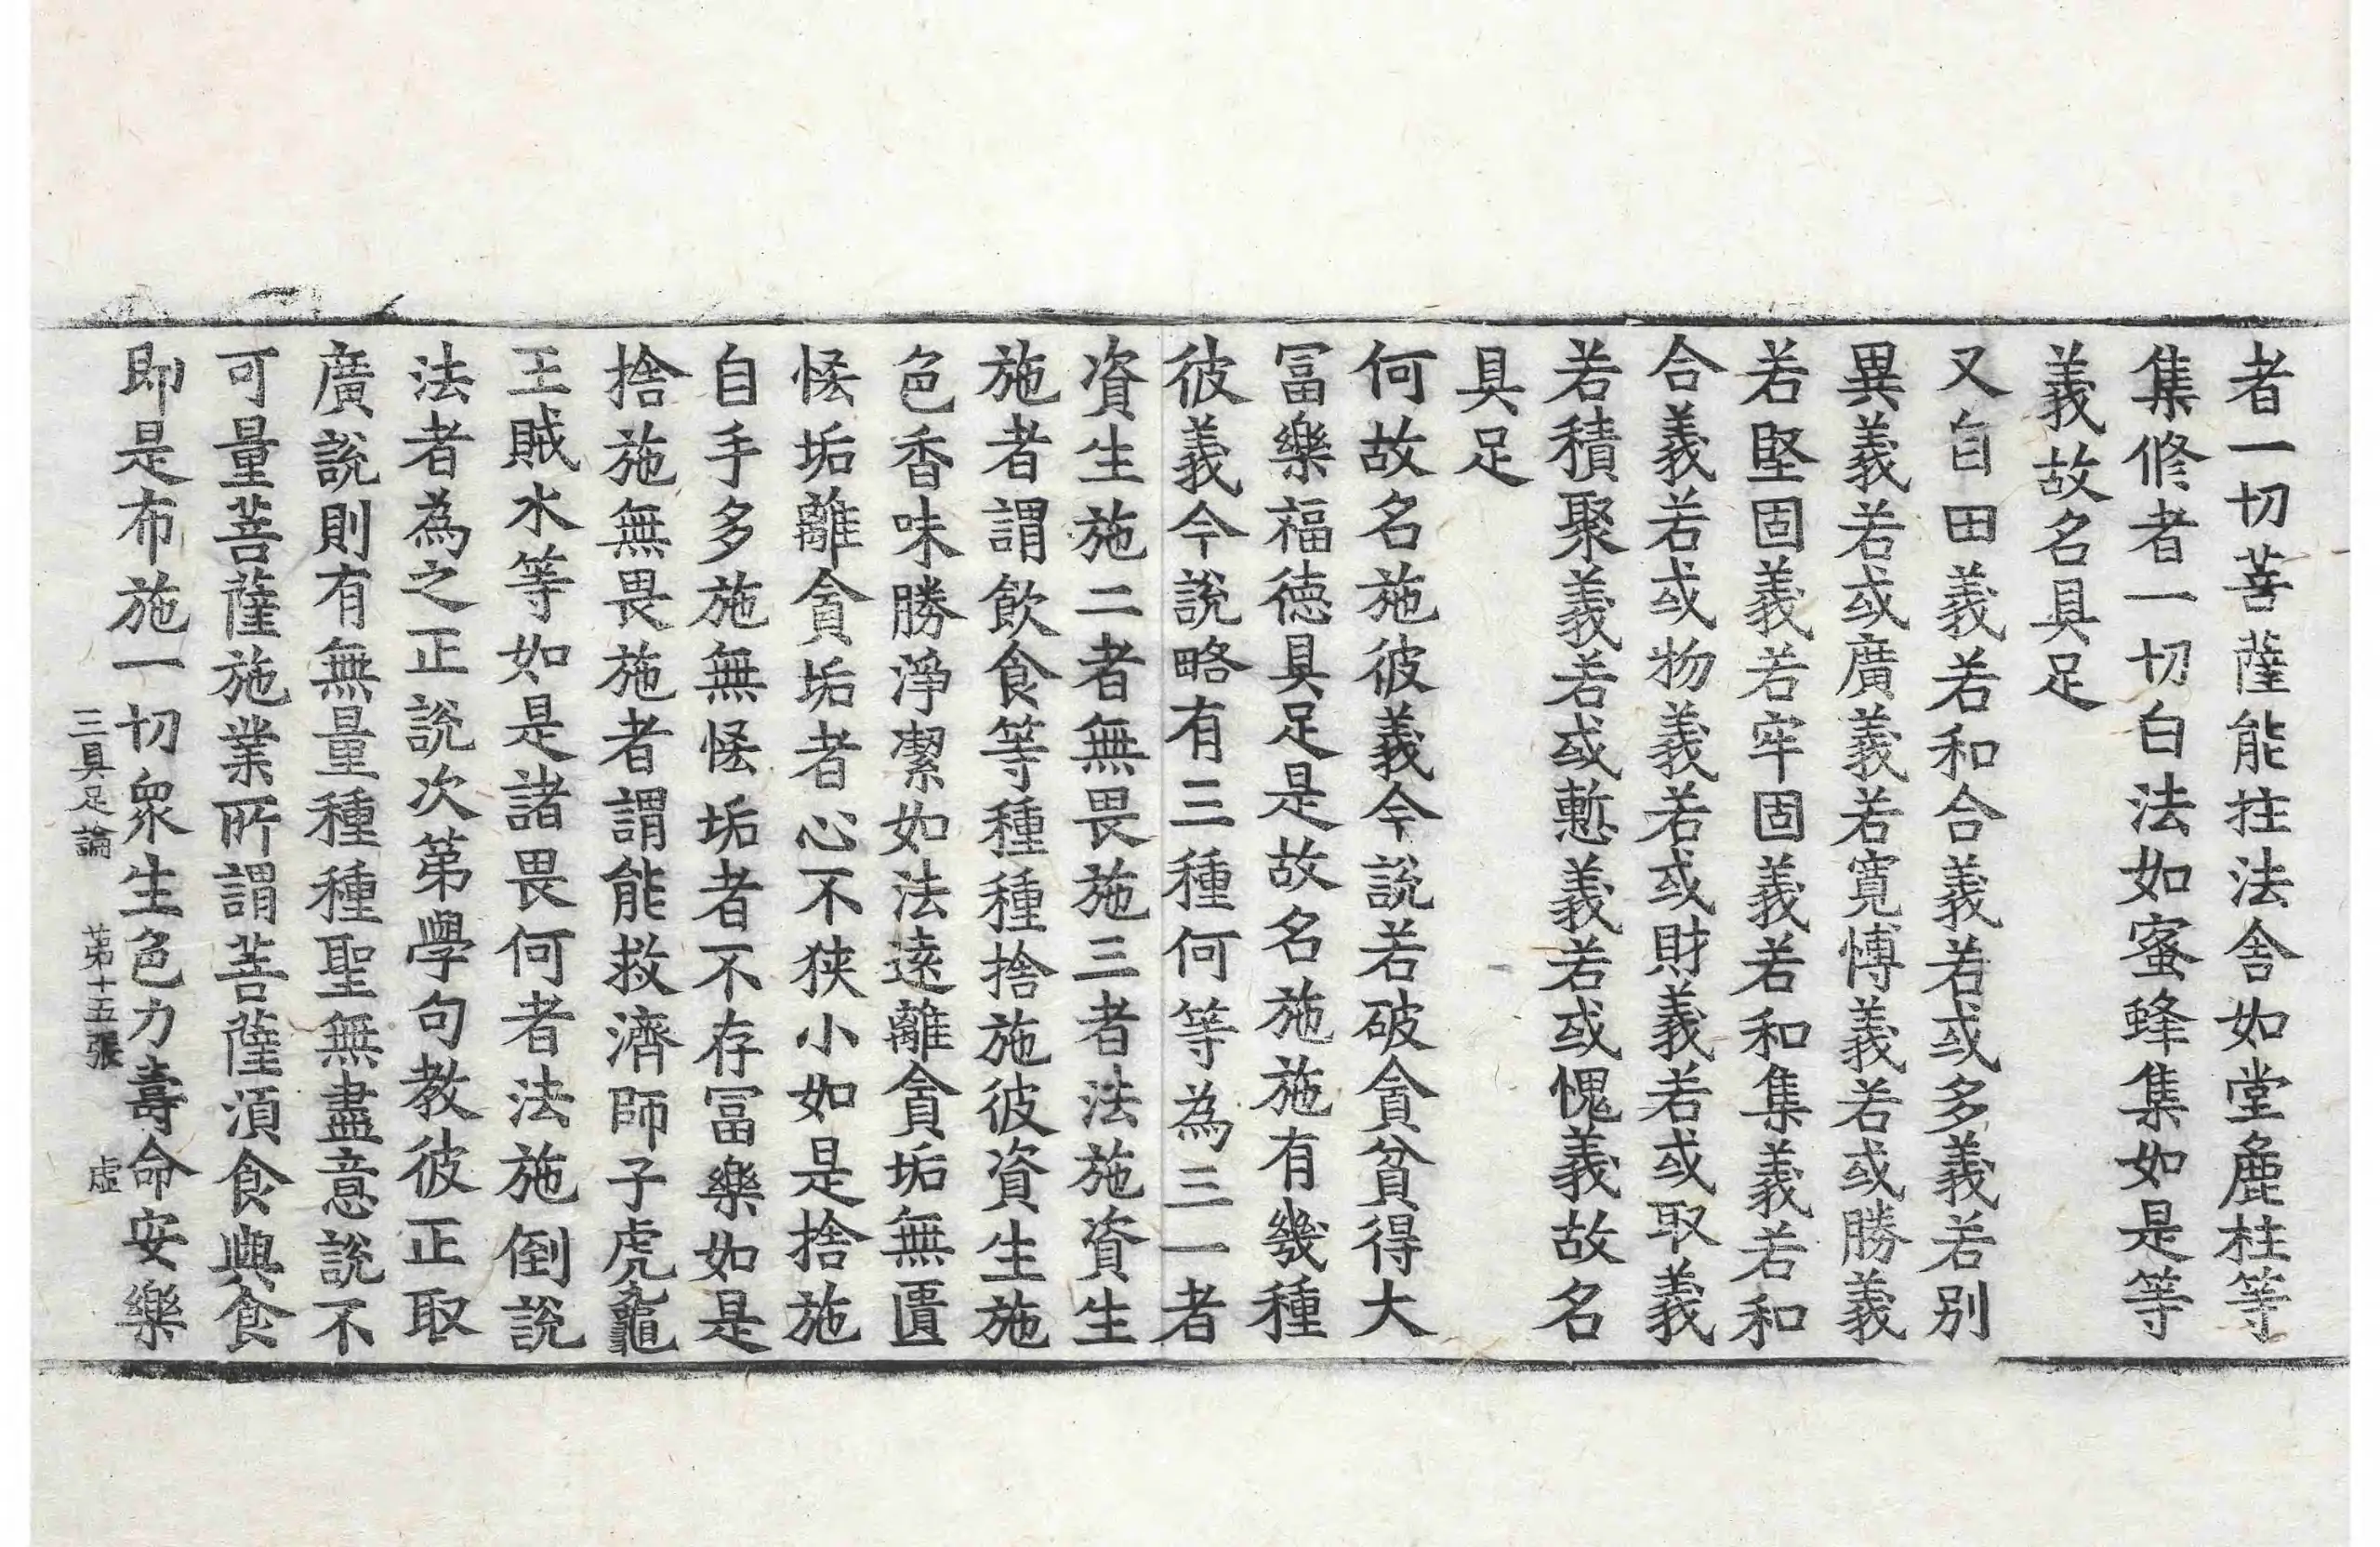 者一切菩薩能拄法舍如堂麁柱等
集修者一切白法如蜜蜂集如是等
義故名具足
又自田義若和合義若或多義若別
異義若或廣義若寬愽義若或勝義
若堅固義若牢固義若和集義若和
合義若或物義若或財義若或取義
若積聚義若或慙義若或愧義故名
具足
何故名施彼義今說若破貪貧得大
冨樂福徳具足是故名施施有幾種
彼義今說略有三種何等為三一者
資生施二者無畏施三者法施資生
施者謂飲食等種種捨施彼資生施
色香味勝淨潔如法遠離貪垢無匱
恡垢離貪垢者心不狹小如是捨施
自手多施無恡垢者不存冨樂如是
捨施無畏施者謂能救濟師子虎龜
王賊水等如是諸畏何者法施倒說
法者為之正說次第學句教彼正取
廣說則有無量種種聖無盡意說不
可量菩薩施業所謂菩薩湏食與食
即是布施一切衆生色力壽命安樂
三具足論　第十五張　虛